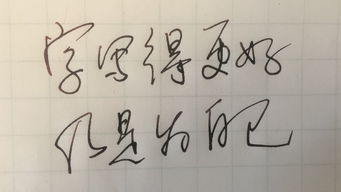 字写得更好
只是为自己